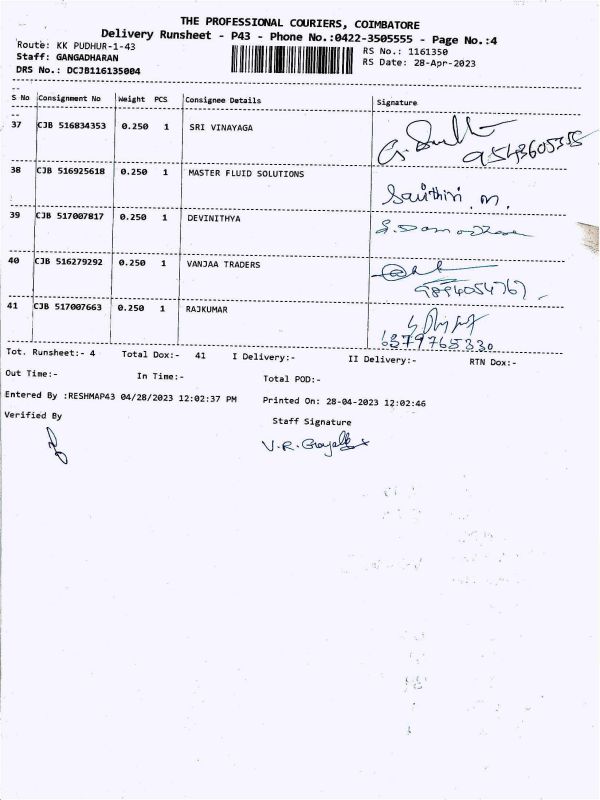 THE PROFESSIONAL COURIERS, COIMBATORE
Delivery Runsheet - P43 - Phone No.:0422-3505555 - Page No.:4
Route: KK PUDHUR-1-43
RS No.: 1161350
Staff: GANGADHARAN
RS Date: 28-Apr-2023
DRS No.: DCJB116135004
S No Consignment No Weight PCS Consignee Details Signature
37 CJB 516834353 0.250 1 SRI VINAYAGA
9543605355
38 CJB 516925618 0.250 1 MASTER FLUID SOLUTIONS
M.
39 CJB 517007817 0.250 1 DEVINITHYA
40 CJB 516279292 0.250 1 VANJAA TRADERS
9894054767
41 CJB 517007663 0.250 1 RAJKUMAR
6379765330
Tot. Runsheet:- 4 Total Dox:- 41 I Delivery:- II Delivery:- RTN Dox:-
Out Time:- In Time:- Total POD:-
Entered By :RESHMAP43 04/28/2023 12:02:37 PM Printed On: 28-04-2023 12:02:46
Verified By Staff Signature
V.R.